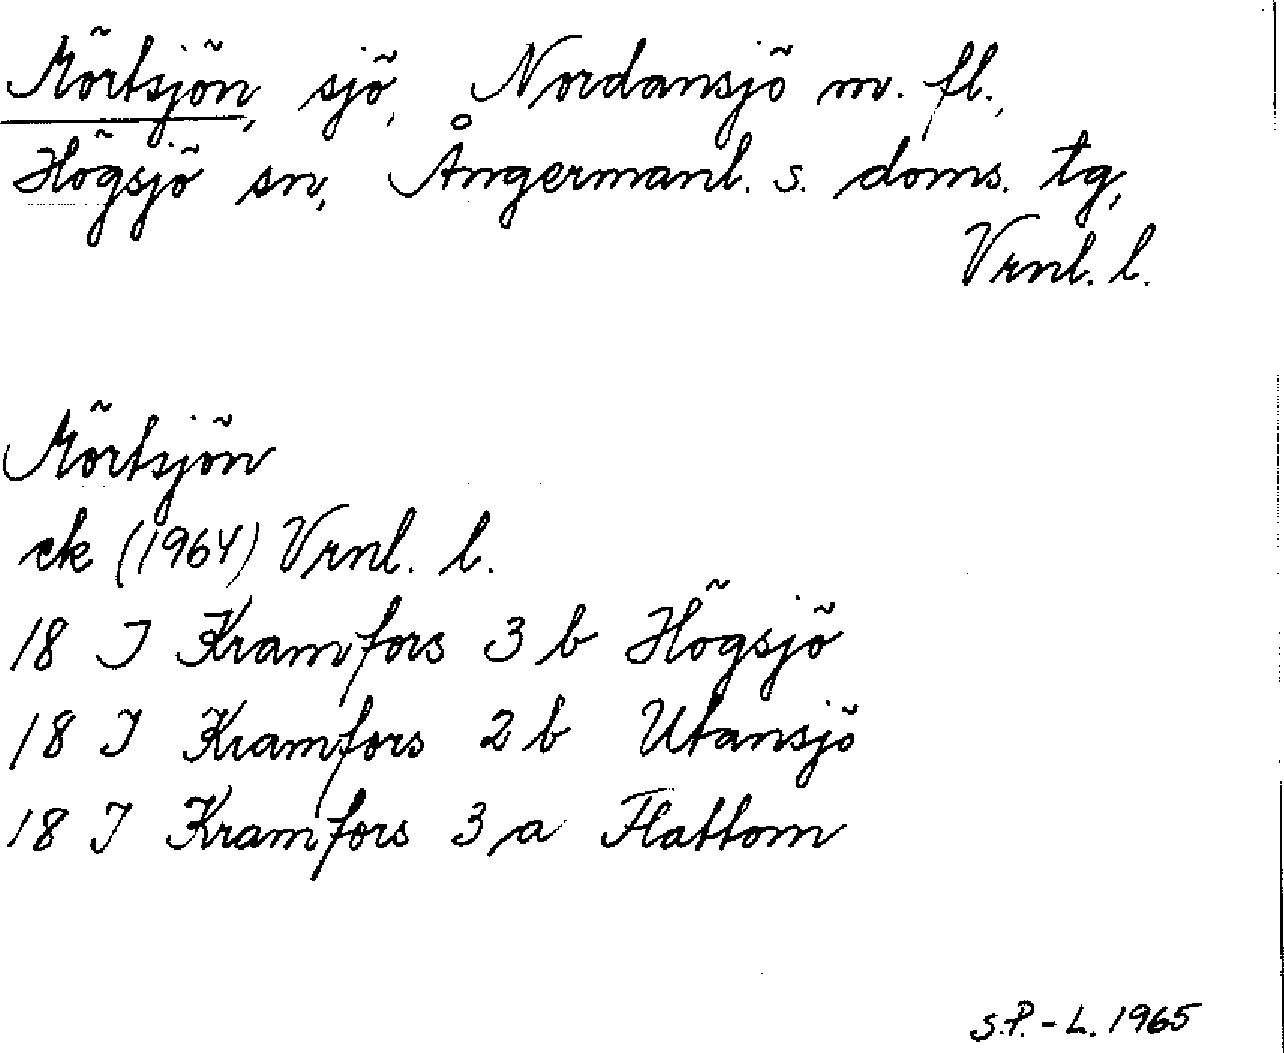 Mörtsjön, sjö, Nordansjö m. fl.,
Högsjö sn, Ångermanl. s. doms. tg,
Vrnl. l.
Mörtsjön
ek (1964) Vrnl. l.
18 I Kramfors 3 b Högsjö
18 I Kramfors 2 b Utansjö
18 I Kramfors 3 a Flattom
S.P.-L. 1965